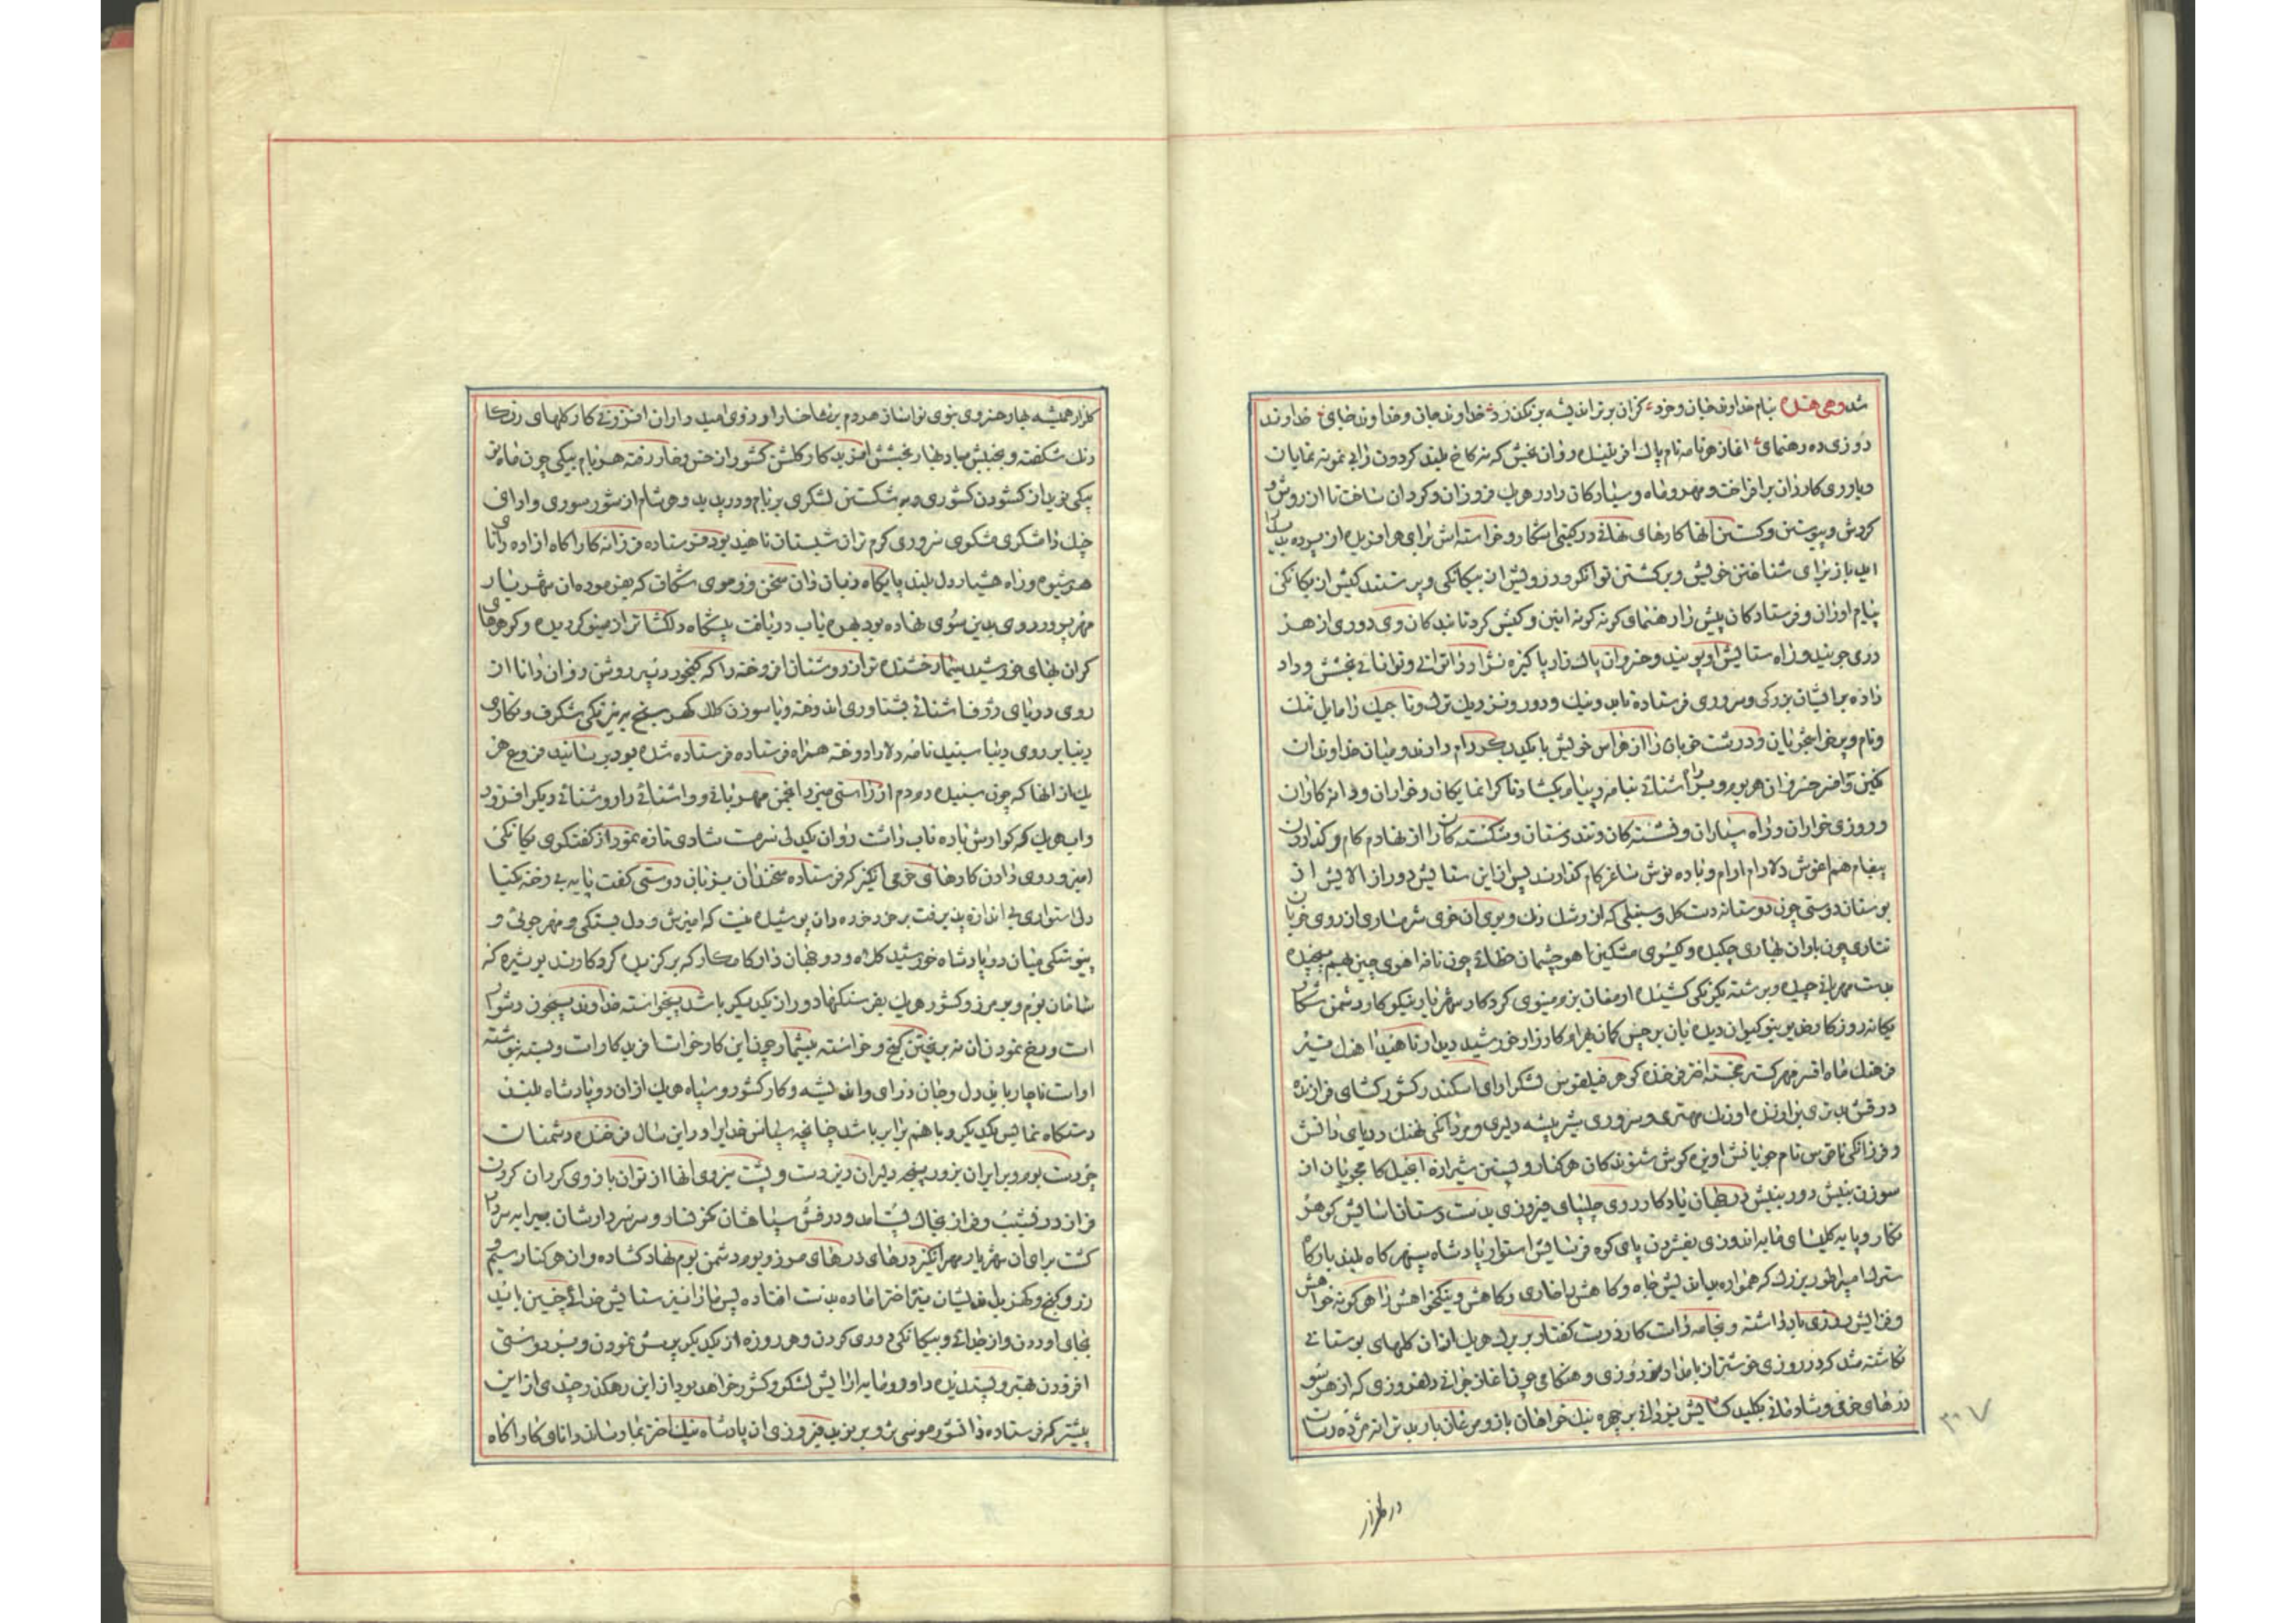 شد وهی هذه بنام خداوند جان و خرد کزان برتر اندیشه برنگذرد خداوند جان و خداوند جای خداوند
روزی ده رهنمای آغاز هر نامه نام پاک آفریننده روان بخش که نه کاخ بلند گردون را بی نمونه نمایان
و یاوری کارزان برافراخت و مهر و ماه و ستارگان را در هر یک فروزان و گردان ساخت تا از روش و
گردش و پیوستن و گسستن آنها کارهای نهانی در گیتی آشکار و خواسته اش برای هر آفریده از پرده پدیدار
آید باز برای شناختن خویش و برگشتن توانگر و درویش از بیگانگی و پرستند کیش از یگانگی
پیام آوران و فرستادگان پیش را رهنمای گونه گونه آئین و کیش کرد تا بندگان وی دوری از هر
دری جویند و راه ستایش او پویند و خسروان پاک زاد پاکیزه نژاد را توانائی بخشش و داد
داده بر ایشان بزرگی و سروری فرستاده تا بد و نیک و دور و نزدیک ترک و تاجیک را مایل ننگ
و نام و پرخاشجویان و درشت خویان را از هراس خویش با یکدیگر رام دارند و میان خداوندان
نگین و افسر خسروان هر بوم و بر آشنائی بنامه و پیام گشاد تا گرانمایگان و خواران و دانه کاران
و روزی خواران و راه سپاران و نشستگان و تندرستان و شکستگان را از نهاد م کام و گذاردن
پیغام هم آغوش دلارام آرام و باده نوش ساغر کام گذارند پس از این ستایش دور از آلایش از
بوستان دوستی چون دوستانه دست گل و سنبلی که از رشک رنگ و بوی آن خوی شرمساری از روی خوبان
تتاری چون باران بهاری چکیده و گیسوی مشکین آهو چشمان خطائی چون نافه آهوی چین بهم پیچیده
بدست مهربانی چیده و برشته یکرنگی کشیده ارمغان بزم مینوی کردگار شهریار نیکوکار دشمن شکار
یگانه روزگار خدیو کیوان دیده بان برجیس کمان بهرام کارزار خورشید دیدار ناهید تیر
فرهنگ ماه افسر مهر گستر خجسته اختر فرخنده گوهر فیلقوس لشگر آرای اسکندر کشور گشای فرازنده
درفش برتری برازنده اورنگ مهتری و سروری شیر بیشه دلیری و مردانگی نهنگ دریای دانش
و فرزانگی ناقوس نام جویانش آویزه گوش شنوندگان هر کنار و پسین شیرازه انجیل کامجویان از
سوزن بینش دوربینش یادگار روی چلیپای فیروزی بدست دستان آسایش گوهر
نگار و پایه کلیسای مایه اندوزی بفشردن پای کوه فرسایش استوار پادشاه سپهر گاه بلند بارگاه
سترک امپراطور بزرگ که همواره بداندیش جاه و کاهش با خواری و کاهش و نیکخواهش را هر گونه خواهش
و فزایش روزی باد داشته و خامه راست کار درست گفتار بر برک هر یک از آن گلهای بوستانی
نگاشته شد که در روزی خوشتر از بامداد نوروزی و هنگامی چون آغاز جوانی دلفروزی که از هر سو
درهای خرمی و شادمانی بکلید گشایش یزدانی بر چهره نیک خواهان باز و مرغان باربد ترانه مژده رسان
در گلزار
۳۰۷
گلزار همیشه بهار خسروی بنوی نواساز هر دم بر شاخسار آرزوی امیدواران افزونی کار گلهای رنگا
رنگ شکفته و بجنبش باد بهار بخشش ایزد کار گلشن کشور از خس و خار رفته هر بام پیکی چون ماه نو
پیکی نوید از گشودن کشوری و به شکستن لشکری بر بام و در پدید و هر شام از شور سوری و آوای
چنگ رامشگری مشکوی سروری گرم تر از شبستان ناهید بود فرستاده فرزانه کارآگاه آزاده دانای
هر شیوه و راه هشیار دل بلند پایگاه زبان دان سخن ور موی شکاف که بفرموده آن شهریار
مهر پرور روی بدین سوی نهاده بود بهره یاب دریافت پیشگاه دلگشاتر از مینو گردیده و گوهرهای
گران بهای خورشید سیمای رخشنده تر از روشنان افروخته را که گنجور دبیر روشن روان دانا از
روی دریای ژرف آشنائی بشناوری اندوخته و با سوزن کلک گهرسنج به نیرنگی شگرف و نگاری
دیبا بر روی دیبا سپید نامه دلارا دوخته همراه فرستاده فرستاده شده بود برسانید فروغ هر
یک از آنها که چون سپیده دم دم از راستی میزد انجمن مهربانی و آشنائی را روشنائی دیگر افزود
و آب هر یک که گوارش باده ناب داشت روان یکدلی سرمست شادی تازه نمود از گفتگوی یگانگی
آمیز و روی دادن کارهای خرمی انگیز که فرستاده سخندان بزبان دوستی گفت پایه بی رخنه یکتا
دلی استواری بی اندازه پذیرفت بر خرد خرده دان پوشیده نیست که آمیزش و دل بستگی و مهرجوئی و
پیوستگی میان دو پادشاه خورشید کلاه و دو جهان دار کامکار که برگزیده کردگارند بویژه که
شاهان بوم و بر مرز و کشور هر یک بفرسنگها دور از یکدیگر باشد بیخواسته خداوند بیچون دشوار
است و رخ نمودن آن نه بریختن گنج و خواسته بیشمار چون این کار خواست آفریدگار است و بسته نوشته
او است ناچار باید دل و جان و رای و اندیشه و کار کشور و سپاه هر یک از آن دو پادشاه بلند
دستگاه نمایش یکدیگر و با هم برابر باشد چنانچه سپاس خدایرا در این سال فرخنده دشمنان
چیره دست بوم و بر ایران بزور پنجه دلیران زبردست و پشت نیروی آنها از توان بازوی گردان گردن
فراز در نشیب و فراز بخاک پست آمد و درفش سپاهشان نگونسار و سر سردارشان پیرایه سردار
گشت برای آن شهریار مهر انگیز درهای دژهای مرز و بوم دشمن بوم نهاد گشاده و از هر کنار سیم و
زر و گنج و گهر بدست افتاده پس ما را نیز ستایش خدائی چنین باید
بجای آوردن و از جدائی و بیگانگی دوری کردن و هر روزه از یکدیگر پرسش نمودن و بر دوستی
افزودن بهتر و پسندیده داور و مایه آرایش لشکر و کشور خواهد بود از این رهگذر چندی از این
پیشتر که فرستاده دانشور موسی بر و بر نوید فیروزی آن پادشاه نیک اختر بما رسانده دانای کارآگاه